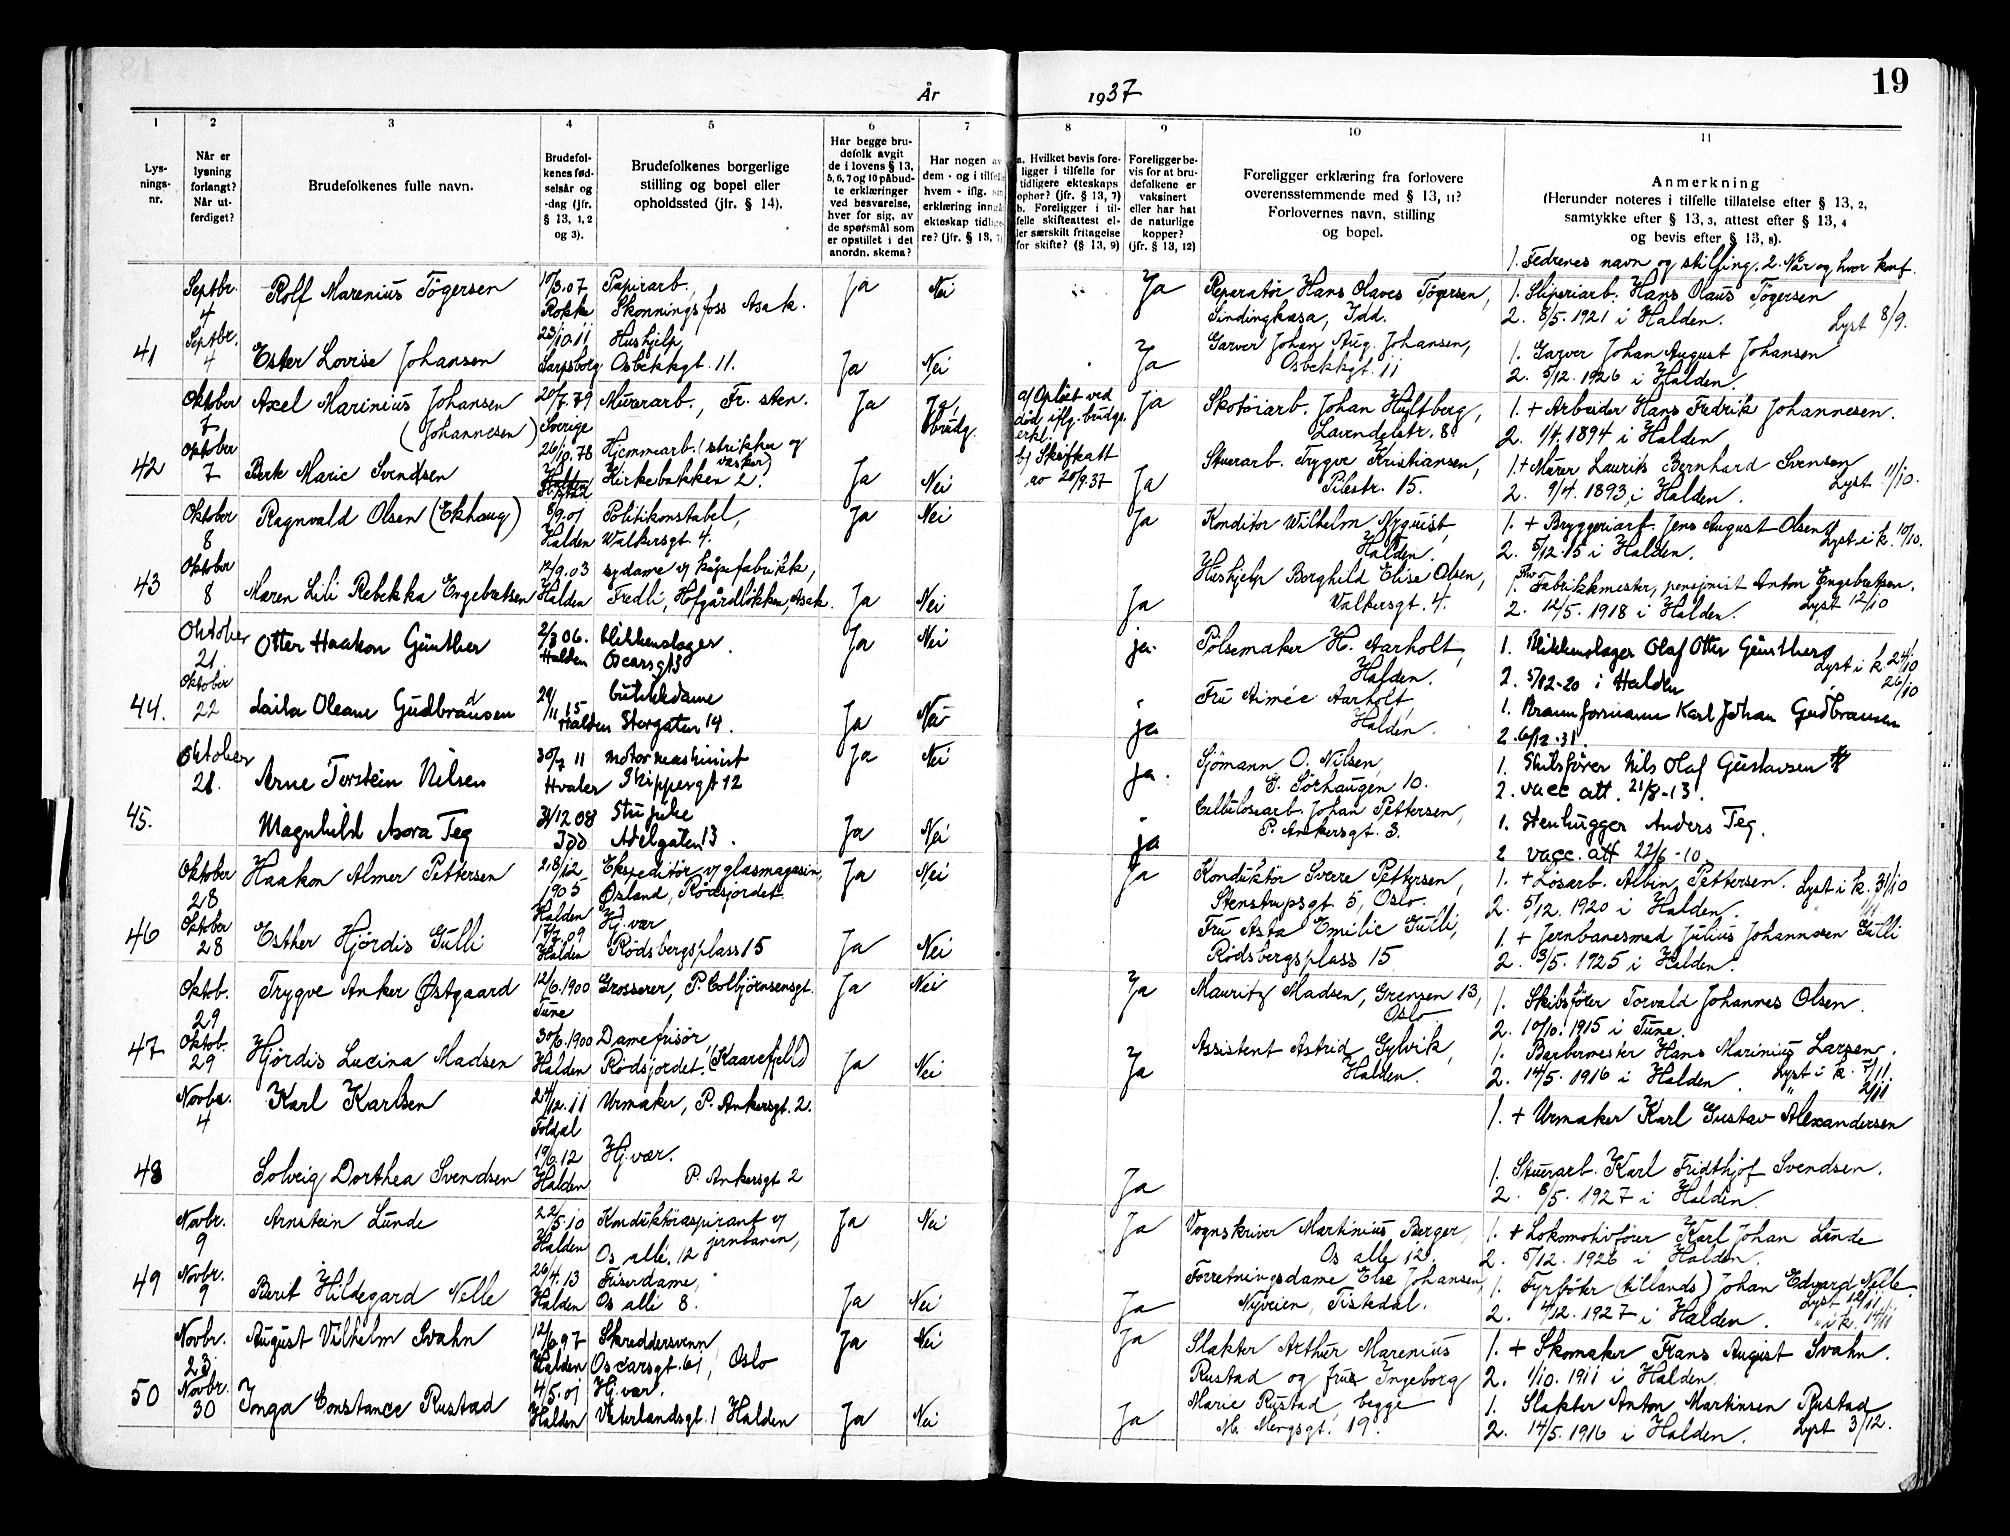 19
År 1937
1 2 3 4 5 6 7 8 9 10 11
Lys-
nings-
nr.
Når er
lysning
forlangt?
Når ut-
ferdiget?
Brudefolkenes fulle navn.
Brudefol-
kenes fød-
selsår og
-dag (jfr.
§ 13, 1, 2
og 3).
Brudefolkenes borgerlige
stilling og bopel eller
opholdssted (jfr. § 14).
Har begge bru-
defolk avgit
de i lovens § 13,
5, 6, 7 og 10 påbud-
te erklæringer
ved besvarelse,
hver for sig, av
de spørsmål som
er opstillet i det
anordn. skema?
Har nogen av
dem - og i tilfelle
hvem - iflg. sin
erklæring inngå
ekteskap tidlige-
re? (jfr. § 13, 7)
a. Hvilket bevis fore-
ligger i tilfelle for
tidligere ekteskaps
ophør? (jfr. § 13, 7)
b. Foreligger i til-
felle skifteattest el-
ler særskilt fritagelse
for skifte? (§ 13, 9)
Foreligger be-
vis for at bru-
defolkene er
vaksinert
eller har hat
de naturlige
kopper?
(jfr. § 13, 12)
Foreligger erklæring fra forlovere
overensstemmende med § 13, 11?
Forlovernes navn, stilling
og bopel.
Anmerkning
(Herunder noteres i tilfelle tillatelse efter § 13, 2,
samtykke efter § 13, 3, attest efter § 13, 4
og bevis efter § 13, 8).
1. Fedrenes navn og stilling. 2. Når og hvor konf.
Septbr. Rolf Marenius Tögersen 3.07 Papirarb., Ja Nei Ja Reparatør Hans Olaves Tögersen, 1. Sliperiarb. Hans Olaus Tögersen
4 Rokke Skonningsfoss Asak. Idd. 2. 8/5. 1921 i Halden. Lyst 8/9.
Septbr. 23/10.11 Hushjelp, Garver Johan Aug. Johansen, 1. Garver Johan August Johansen
41 4 Ester Lovise Johansen Sarpsborg Osbekkgt. 11. Ja Nei Ja Osbekkgt. 11 2. 5/12. 1926 i Halden.
Oktober Axel Marinius Johansen 20/7.79 Murerarb., Fr. sten. Ja Ja, brudg. a) Opløst ved ja Skotøiarb. Johan Hultberg, 1. + Arbeider Hans Fredrik Johannesen.
7 (Johannesen) Sverige død iflg. brudg. erkl. Lavendelstr. 8 2. 1/4. 1894 i Halden
Oktober 26/10.78 Hjemmearb. (strikker og vasker) b) Skifteatt Stuerarb. Trygve Kristiansen, 1. + Murer Laurits Bernhard Svensen
42 7 Berte Marie Svendsen Kirkebakken 2. Ja Nei av 20/9.37 Ja Pilestr. 15. 2. 9/4. 1893, i Halden. Lyst 11/10.
Oktober Ragnvald Olsen (Ekhaug) 8/9.01 Politikonstabel, Ja Nei Ja Konditor Wilhelm Nyquist, 1. + Bryggeriarb. Jens August Olsen
8 Halden Walkersgt 4. Halden. 2. 5/12.15 i Halden. Lyst i k. 10/10.
Oktober 12/9.03 sydame v/ kåpefabrikk, Hushjelp Borghild Elise Olsen, 1. Fabrikkmester, pensjonist Anton Engebretsen.
43 8 Maren Lili Rebekka Engebretsen Halden Fredli, Hofgårdløkken, Asak. Ja Nei Ja Walkersgt. 4. 2. 12/5. 1918 i Halden. Lyst 12/10
Oktober Otter Haakon Günther 2/3 06. blikkenslager. Ja Nei ja. Pölsemaker H. Aarholt, 1. Blikkenslager Olaf Otter Günther
21. Halden Oscarsgt 3 Halden. 2. 5/12-20 i Halden Lyst i k. 24/10
Oktober 29/11 15 butikkdame Fru Aimée Aarholt, 26/10
44. 22 Laila Oleane Gudbrandsen Halden Storgaten 19. Ja Nei ja Halden. 1. Brannformann Karl Johan Gudbransen
2. 6/12.31
Oktober 30/7 11 motormaskinist Ja Nei ja. Sjömann O. Nilsen, 1. Skibsfører Nils Olaf Gustavsen
21. Arne Torstein Nilsen Hvaler Skippergt 12 Ö. Sörhaugen 10. 2. vacc att. 21/8-13.
45. Magnhild Asora Teg 31/12 08 Stupike Ja Nei ja Cellulosearb. Johan Pettersen, 1. Stenhugger Anders Teg.
Idd Adelgaten 13. P. Ankersgt. 3. 2 vacc. att 22/6-10
Oktober Haakon Almer Pettersen 28/12 Ekspeditør v/ glasmagasin, Ja Nei Ja Konduktør Sverre Pettersen, 1. + Løsarb. Albin Pettersen. Lyst i k. 31/10
28 1905 Halden Øsland, Rödsjordet. Stenstrupsgt. 5, Oslo. 2. 5/12. 1920 i Halden.
Oktober 09 Hj. vær Fru Asta Emilie Gulli, 1. + Jernbanesmed Julius Johannesen Gulli
46 28 Esther Hjördis Gulli Halden Rødsbergsplass 15 Ja Nei Rödsbergsplass 15 2. 3/5. 1925 i Halden.
Oktob. Trygve Anker Østgaard 12/6.1900 Grosserer, P. Colbjørnsensgt. Ja Nei Ja Mauritz Madsen, Grensen 13, 1. Skibsfører Torvald Johannes Olsen.
29 Tune Oslo 2. 10/10. 1915 i Tune.
Oktob. 30/6.1900 Damefrisør, Assistent Astrid Gylvik, 1. Barbermester Hans Marinius Larsen.
47 29 Hjördis Lucina Madsen Halden Rödsjordet. (Kaarefjell) Ja Nei Ja Halden. 2. 14/5. 1916 i Halden. Lyst i k. 7/11
Novbr. Karl Karlsen 12.11 Urmaker, P. Ankersgt. 2.
4 Foldal 1. + Urmaker Karl Gustav Alexandersen
19/6.12 Hj. vær. 1. Stuerarb. Karl Fridthjof Svendsen.
48 Solveig Dorthea Svendsen Halden P. Ankersgt 2 Ja 2. 8/5. 1927 i Halden
Novbr. Arnstein Lunde 22/5.10 Konduktøraspirant v/ jernbanen, Ja Nei Ja Vognskriver Martinius Berger, 1. + Lokomotivfører Karl Johan Lunde
9 Halden Os allé, 12 Os alle 12. 2. 5/12. 1926 i Halden.
Novbr. 26/4.13 Friserdame, Forretningsdame Else Johansen, 1. Fyrbøter (tillands) Johan Edvard Nelle.
49 9 Berit Hildegard Nelle Halden Os allé 8. Ja Nei Ja Nyveien, Tistedal. 2. 4/12. 1927 i Halden. Lyst 12/11 " i k. 14/11
Novbr. August Vilhelm Svahn 12/6.97 Skreddersvenn Ja Nei Ja Slakter Arthur Marenius 1. + Skomaker Frans August Svahn.
23 Halden Oscarsgt. 61, Oslo Rustad og frue Ingeborg 2. 1/10. 1911 i Halden.
Novbr. 4/5.01 Hj. vær. Marie Rustad, begge 1. Slakter Anton Martinsen Rustad
50 30 Inga Constance Rustad Halden Vaterlandsgt. 1 Halden Ja Nei Ja 19. 2. 14/5. 1916 i Halden. Lyst 3/12.